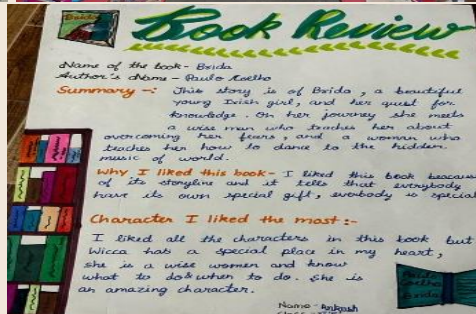 Brida
Book Review
Name of the book - Brida
Author's Name - Paulo Coelho
Summary -: This story is of Brida, a beautiful
young Irish girl, and her quest for
knowledge. On her journey she meets
a wise man who teaches her about
overcoming her fears, and a woman who
teaches her how to dance to the hidden
music of world.
Why I liked this book - I liked this book because
of its storyline and it tells that everybody
have its own special gift, everbody is special
Character I liked the most :-
I liked all the characters in this book but
Wicca has a special place in my heart,
she is a wise women and know
what to do & when to do. She is
an amazing character.
Coelho
Brida
Name -